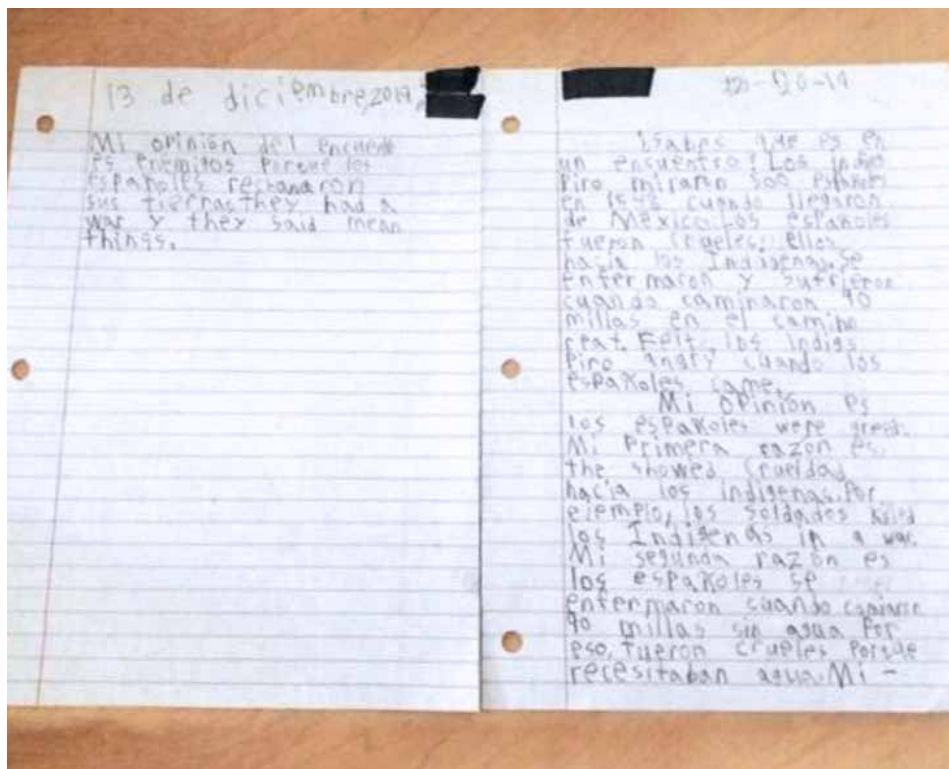 13 de diciembre, 2019
Mi opinión del encuentro
es enemitos porque los
españoles
sus tierras they had a
war y they said mean
things.
12-20-19
¿Sabes que es en
un encuentro? Los indios
Piro miraron 500 españoles
en 1598 cuando llegaron
de México. Los españoles
fueron crueles. ellos
hacia los Indígenas. Se
enfermaron y sufrieron
cuando caminaron 90
millas en el camino
reat. Felt los indigs
Piro angry cuando los
españoles came.
Mi opinión es
los españoles were greedy.
Mi Primera razón es,
the showed crueldad
hacia los indígenas. Por
ejemplo, los soldados killed
los Indígenas in a war.
Mi segunda razón es
los españoles se
enfermaron cuando caminaron
90 millas sin agua Por
eso, fueron crueles Porque
necesitaban agua. Mi -